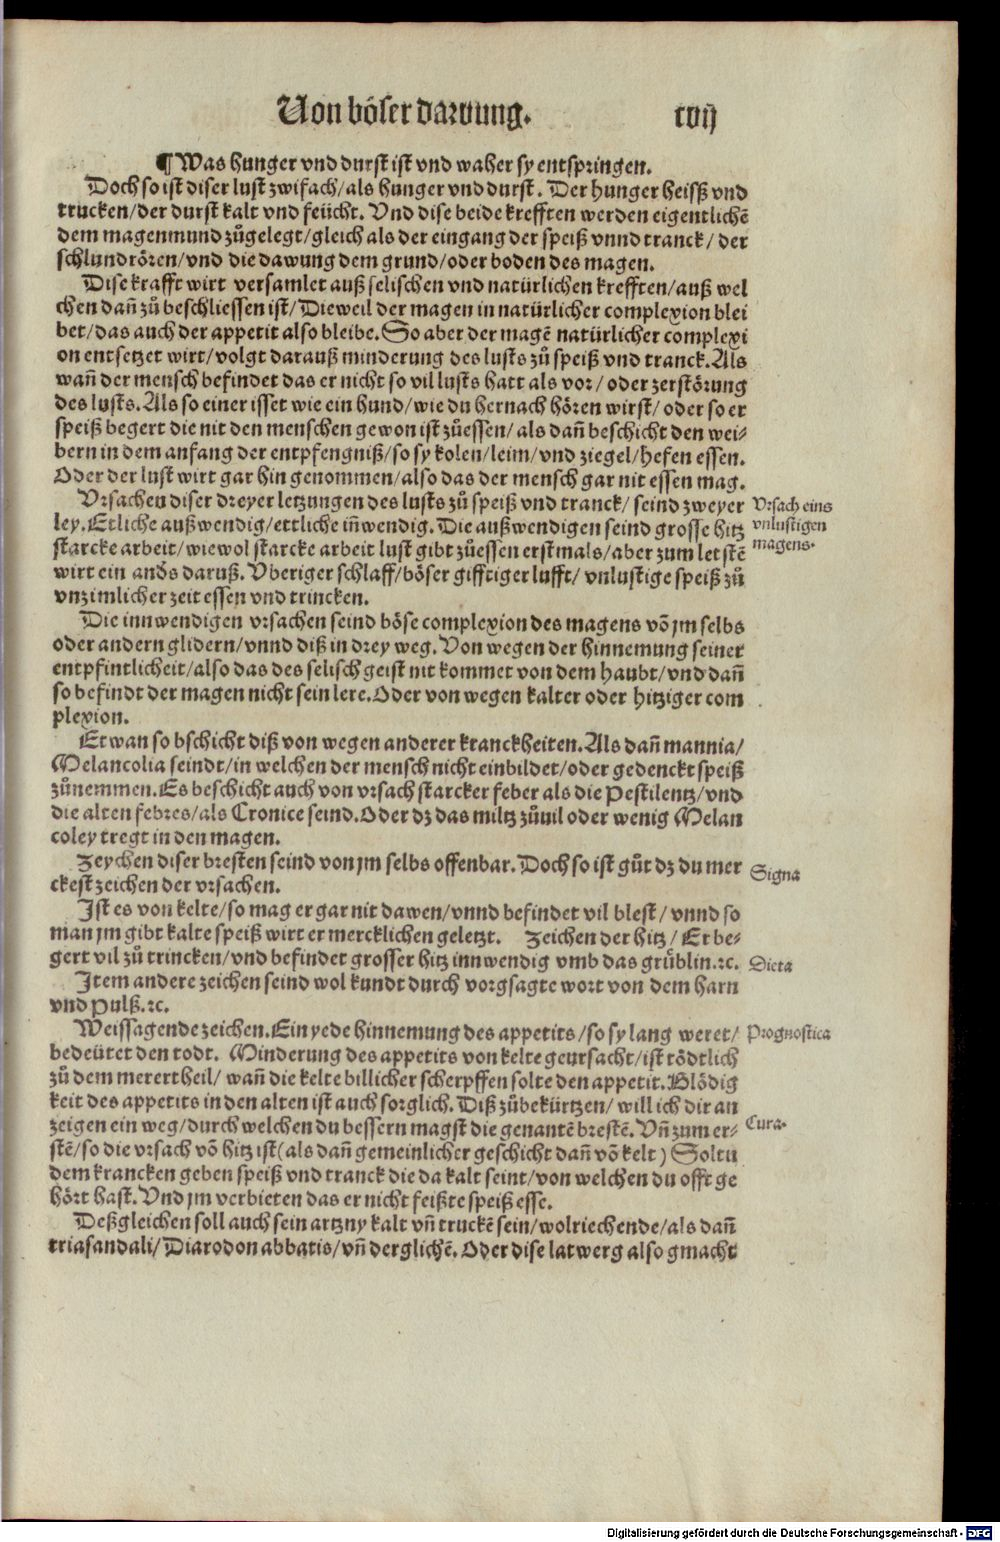 Von böser dawung. cvij
¶ Was hunger vnd durst ist vnd waher sy entspringen.
Doch so ist diser lust zwifach/als hunger vnd durst. Der hunger heisß vnd
trucken/der durst kalt vnd feücht. Vnd dise beide krefften werden eigentlichē
dem magenmund zůgelegt/gleich als der eingang der speiß vnnd tranck/ der
schlundrören/vnd die dawung dem grund/oder boden des magen.
Dise krafft wirt versamlet auß selischen vnd natürlichen krefften/auß wel
chen dañ zů beschliessen ist/Dieweil der magen in natürlicher complexion blei
bet/das auch der appetit also bleibe. So aber der magē natürlicher complexi
on entsetzet wirt/volgt darauß minderung des lusts zů speiß vnd tranck. Als
wañ der mensch befindet das er nicht so vil lusts hatt als vor/ oder zerstörung
des lusts. Als so einer isset wie ein hund/wie du hernach hören wirst/ oder so er
speiß begert die nit den menschen gewon ist zůessen/als dañ beschicht den wei-
bern in dem anfang der entpfengniß/so sy kolen/leim/vnd ziegel/hefen essen.
Oder der lust wirt gar hin genommen/also das der mensch gar nit essen mag.
Vrsachen diser dreyer letzungen des lusts zů speiß vnd tranck/ seind zweyer
ley. Etliche außwendig/ettliche iñwendig. Die außwendigen seind grosse hitz
starcke arbeit/wiewol starcke arbeit lust gibt zůessen erstmals/aber zum letstē
wirt ein anđs daruß. Vberiger schlaff/böser gifftiger lufft/ vnlustige speiß zů
vnzimlicher zeit essen vnd trincken.
Vrsach eins
vnlustigen
magens.
Die innwendigen vrsachen seind böse complexion des magens vō jm selbs
oder andern glidern/vnnd diß in drey weg. Von wegen der hinnemung seiner
entpfintlicheit/also das des selisch geist nit kommet von dem haubt/vnd dañ
so befindt der magen nicht sein lere. Oder von wegen kalter oder hitziger com
plexion.
Etwan so bschicht diß von wegen anderer kranckheiten. Als dañ mannia/
Melancolia seindt/in welchen der mensch nicht einbildet/oder gedenckt speiß
zůnemmen. Es beschicht auch von vrsach starcker feber als die Pestilentz/vnd
die alten febres/als Cronice seind. Oder dz das miltz zůuil oder wenig Melan
coley tregt in den magen.
Zeychen diser bresten seind von jm selbs offenbar. Doch so ist gůt dz du mer
ckest zeichen der vrsachen.
Signa
Ist es von kelte/so mag er gar nit dawen/vnnd befindet vil blest/ vnnd so
man jm gibt kalte speiß wirt er mercklichen geletzt. Zeichen der hitz/ Er be-
gert vil zů trincken/vnd befindet grosser hitz innwendig vmb das grüblin.⁊c.
Dieta
Item andere zeichen seind wol kundt durch vorgsagte wort von dem harn
vnd Pulß.⁊c.
Weissagende zeichen. Ein yede hinnemung des appetits/so sy lang weret/
bedeütet den todt. Minderung des appetits von kelte geursacht/ist tödtlich
zů dem merertheil/ wañ die kelte billicher scherpffen solte den appetit. Blödig
keit des appetits in den alten ist auch sorglich. Diß zůbekürtzen/ will ich dir an
zeigen ein weg/durch welchen du bessern magst die genantē brestē. Vñ zum er-
stē/so die vrsach vō hitz ist(als dañ gemeinlicher geschicht dañ vō kelt) Soltu
dem krancken geben speiß vnd tranck die da kalt seint/von welchen du offt ge
hört hast. Vnd jm verbieten das er nicht feißte speiß esse.
Prognostica
Cura.
Deßgleichen soll auch sein artzny kalt vñ truckē sein/wolriechende/als dañ
triasandali/Diarodon abbatis/vñ derglichē. Oder dise latwerg also gmacht
Digitalisierung gefördert durch die Deutsche Forschungsgemeinschaft - DFG